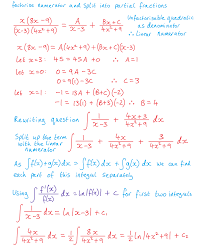 factorise numerator and split into partial fractions
x(8x-9)/(x-3)(4x²+9) ≡ A/x-3 + Bx+C/4x²+9
x(8x-9) ≡ A(4x²+9) + (Bx+C)(x-3)
Let x=3: 45 = 45A + 0 ∴ A=1
Let x=0: 0 = 9A - 3C
0 = 9(1) - 3C ∴ C=3
Let x=1: -1 = 13A + (B+C)(-2)
-1 = 13(1) + (B+3)(-2) ∴ B=4
Rewriting question ∫ 1/x-3 + 4x+3/4x²+9 dx
Split up the term with the linear numerator ∫ 1/x-3 + 4x/4x²+9 + 3/4x²+9 dx
As ∫f(x)+g(x)dx = ∫f(x)dx + ∫g(x)dx we can find
each part of this integral separately
Using ∫ f'(x)/f(x) dx = ln|f(x)| + C for first two integrals
∫ 1/x-3 dx = ln|x-3| + c₁
∫ 4x/4x²+9 dx = 1/2 ∫ 8x/4x²+9 dx = 1/2 ln|4x²+9|